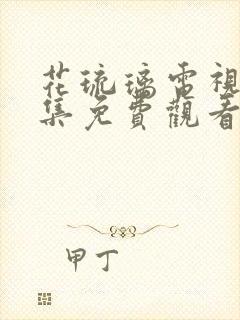 花琉璃電視
集免費觀看
甲丁